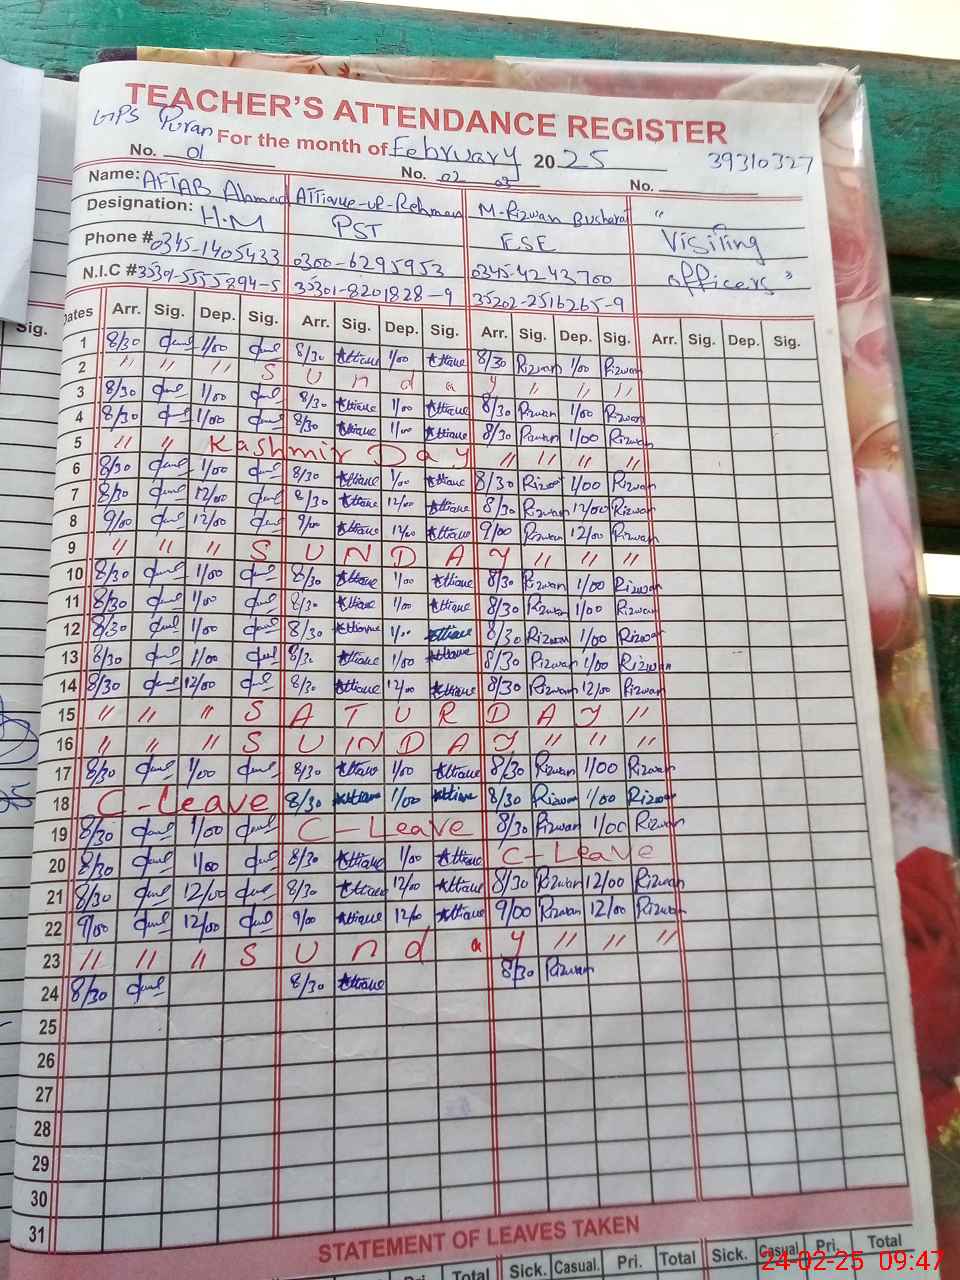 TEACHER'S ATTENDANCE REGISTER
GPS Puran For the month of February 2025 39310327
No. 01 No. 02 03 No.
Name: AFTAB Ahmad Attique-ur-Rehman M-Rizwan Bushara "
Designation: H.M PST E.S.E Visiting
Phone # 0345-1405433 0300-6295953 0345-4243700 officers"
N.I.C # 35301-5555894-5 35301-8201828-9 35202-2516265-9
Sig. Dates Arr. Sig. Dep. Sig. Arr. Sig. Dep. Sig. Arr. Sig. Dep. Sig. Arr. Sig. Dep. Sig.
1 8/30 1/00 8/30 Attique 1/00 Attique 8/30 Rizwan 1/00 Rizwan
2 " " " S u n d a y " " "
3 8/30 1/00 8/30 Attique 1/00 Attique 8/30 Rizwan 1/00 Rizwan
4 8/30 1/00 8/30 Attique 1/00 Attique 8/30 Rizwan 1/00 Rizwan
5 " " Kashmir Day " " " "
6 8/30 1/00 8/30 Attique 1/00 Attique 8/30 Rizwan 1/00 Rizwan
7 8/30 12/00 8/30 Attique 12/00 Attique 8/30 Rizwan 12/00 Rizwan
8 9/00 12/00 9/00 Attique 12/00 Attique 9/00 Rizwan 12/00 Rizwan
9 " " " S U N D A Y " " "
10 8/30 1/00 8/30 Attique 1/00 Attique 8/30 Rizwan 1/00 Rizwan
11 8/30 1/00 8/30 Attique 1/00 Attique 8/30 Rizwan 1/00 Rizwan
12 8/30 1/00 8/30 Attique 1/00 Attique 8/30 Rizwan 1/00 Rizwan
13 8/30 1/00 8/30 Attique 1/00 Attique 8/30 Rizwan 1/00 Rizwan
14 8/30 12/00 8/30 Attique 12/00 Attique 8/30 Rizwan 12/00 Rizwan
15 " " " S A T U R D A Y "
16 " " " S U N D A Y " " "
17 8/30 1/00 8/30 Attique 1/00 Attique 8/30 Rizwan 1/00 Rizwan
18 C-Leave 8/30 Attique 1/00 Attique 8/30 Rizwan 1/00 Rizwan
19 8/30 1/00 C-Leave 8/30 Rizwan 1/00 Rizwan
20 8/30 1/00 8/30 Attique 1/00 Attique C-Leave
21 8/30 12/00 8/30 Attique 12/00 Attique 8/30 Rizwan 12/00 Rizwan
22 9/00 12/00 9/00 Attique 12/00 Attique 9/00 Rizwan 12/00 Rizwan
23 " " " S u n d a y " " "
24 8/30 8/30 Attique 8/30 Rizwan
25
26
27
28
29
30
31
STATEMENT OF LEAVES TAKEN
Pri. Total Sick. Casual. Pri. Total Sick. Casual. Pri. Total
24-02-25 09:47